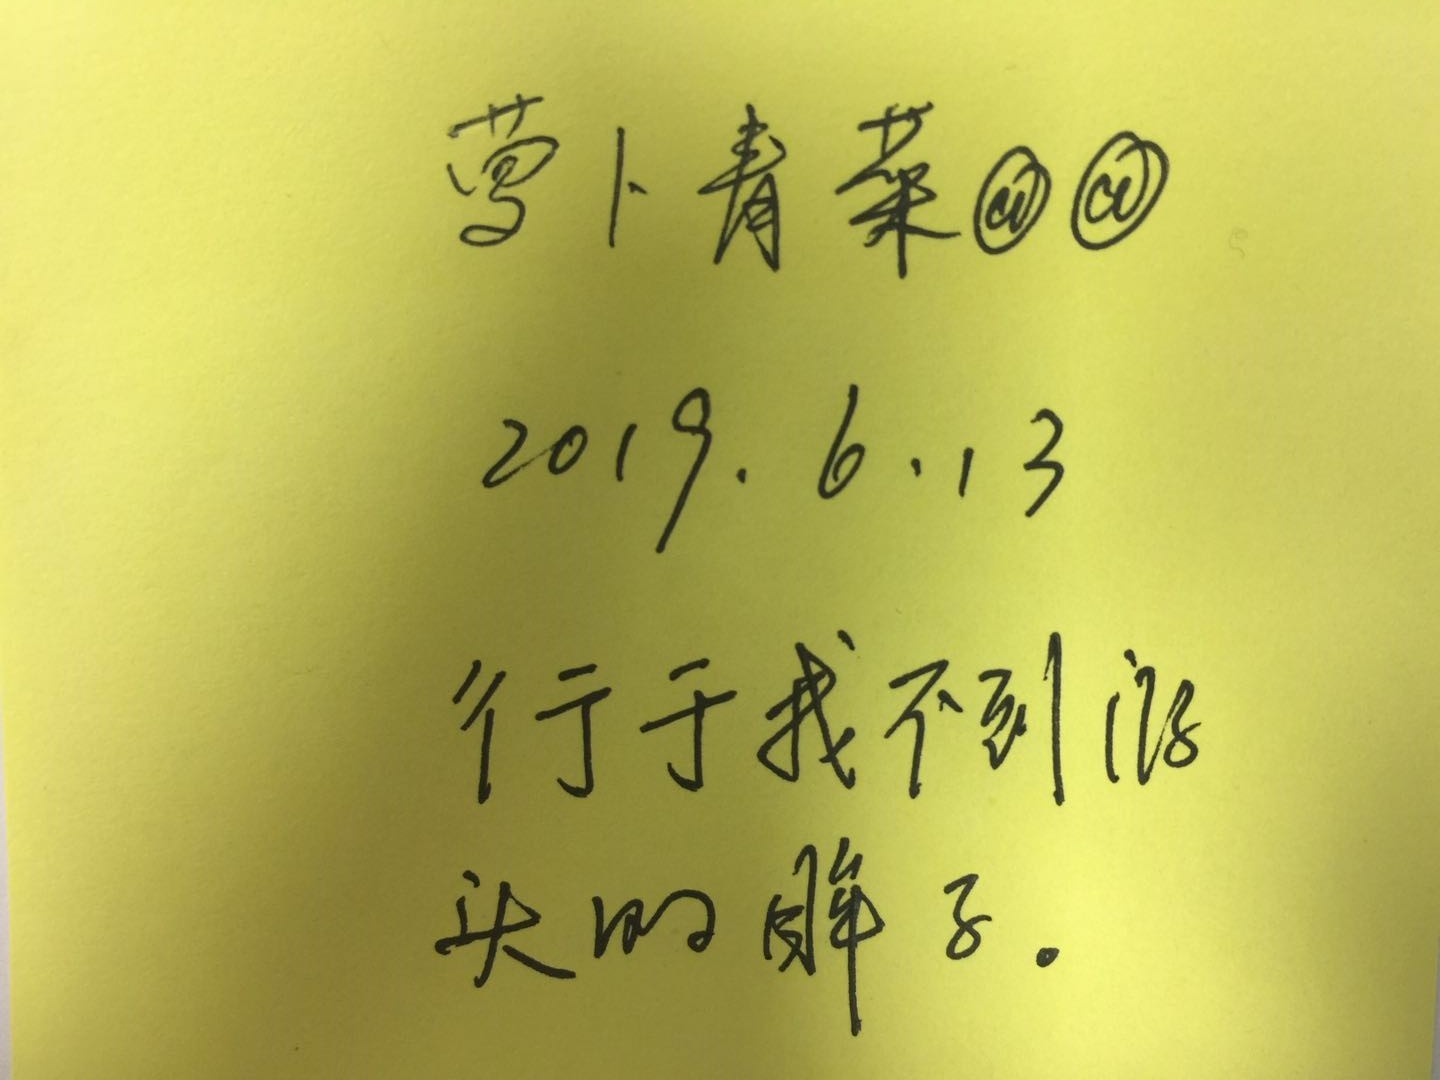 萝卜青菜@@
2019.6.13
行于找不到源
头的眸子.